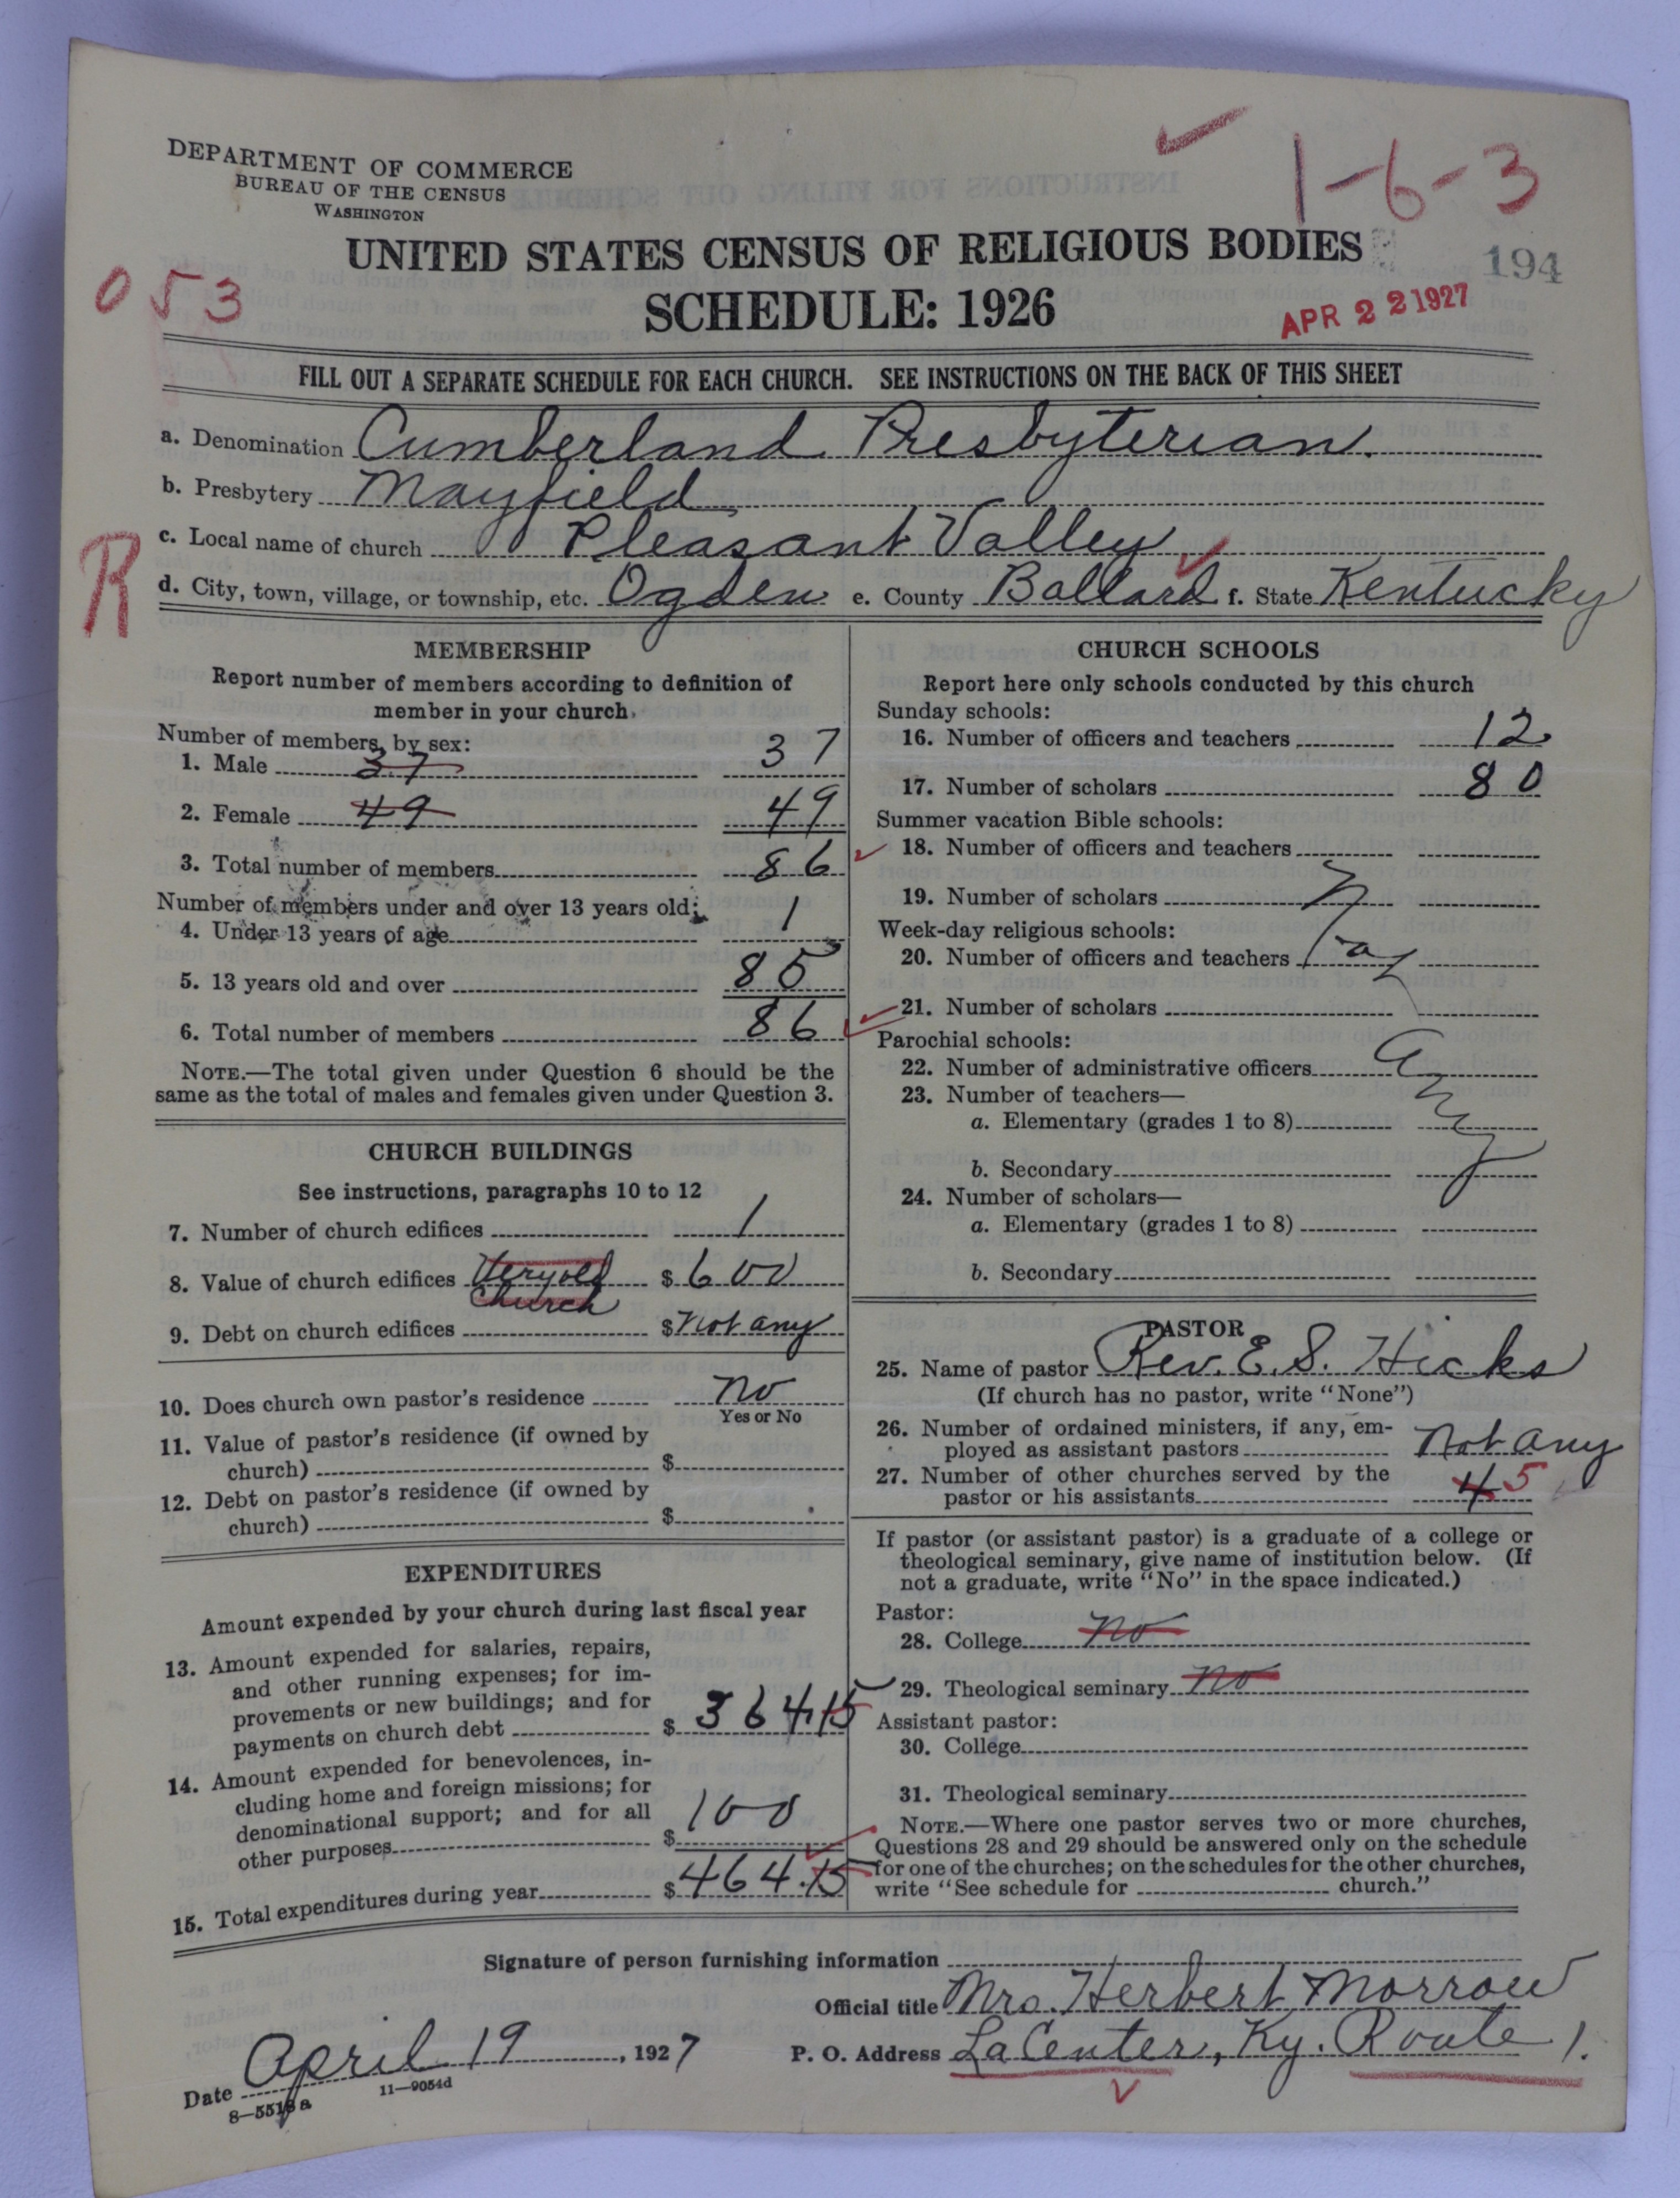 DEPARTMENT OF COMMERCE
BUREAU OF THE CENSUS
WASHINGTON
1-6-3
UNITED STATES CENSUS OF RELIGIOUS BODIES
194
053
SCHEDULE: 1926
APR 22 1927
FILL OUT A SEPARATE SCHEDULE FOR EACH CHURCH. SEE INSTRUCTIONS ON THE BACK OF THIS SHEET
a. Denomination Cumberland Presbyterian.
b. Presbytery Mayfield
c. Local name of church Pleasant Valley
R
d. City, town, village, or township, etc. Ogden e. County Ballard f. State Kentucky
MEMBERSHIP
Report number of members according to definition of
member in your church.
Number of members, by sex:
1. Male 37 37
2. Female 49 49
3. Total number of members 86
Number of members under and over 13 years old:
4. Under 13 years of age 1
5. 13 years old and over 85
6. Total number of members 86
NOTE.—The total given under Question 6 should be the
same as the total of males and females given under Question 3.
CHURCH BUILDINGS
See instructions, paragraphs 10 to 12
7. Number of church edifices 1
8. Value of church edifices Very old $ 600
Church
9. Debt on church edifices $ not any
10. Does church own pastor's residence no
Yes or No
11. Value of pastor's residence (if owned by
church) $
12. Debt on pastor's residence (if owned by
church) $
EXPENDITURES
Amount expended by your church during last fiscal year
13. Amount expended for salaries, repairs,
and other running expenses; for im-
provements or new buildings; and for
payments on church debt $ 364.15
14. Amount expended for benevolences, in-
cluding home and foreign missions; for
denominational support; and for all
other purposes $ 100
15. Total expenditures during year $ 464.15
CHURCH SCHOOLS
Report here only schools conducted by this church
Sunday schools:
16. Number of officers and teachers 12
17. Number of scholars 80
Summer vacation Bible schools:
18. Number of officers and teachers
19. Number of scholars
Week-day religious schools:
20. Number of officers and teachers
21. Number of scholars
Parochial schools:
22. Number of administrative officers
23. Number of teachers—
a. Elementary (grades 1 to 8)
b. Secondary
24. Number of scholars—
a. Elementary (grades 1 to 8)
b. Secondary
PASTOR
25. Name of pastor Rev. E. S. Hicks
(If church has no pastor, write "None")
26. Number of ordained ministers, if any, em-
ployed as assistant pastors not any
27. Number of other churches served by the
pastor or his assistants 4 5
If pastor (or assistant pastor) is a graduate of a college or
theological seminary, give name of institution below. (If
not a graduate, write "No" in the space indicated.)
Pastor:
28. College no
29. Theological seminary no
Assistant pastor:
30. College
31. Theological seminary
NOTE.—Where one pastor serves two or more churches,
Questions 28 and 29 should be answered only on the schedule
for one of the churches; on the schedules for the other churches,
write "See schedule for church."
Signature of person furnishing information
Official title Mrs. Herbert Morrow
Date April 19, 1927
P. O. Address La Center, Ky. Route 1.
11—9054d
8—5518a